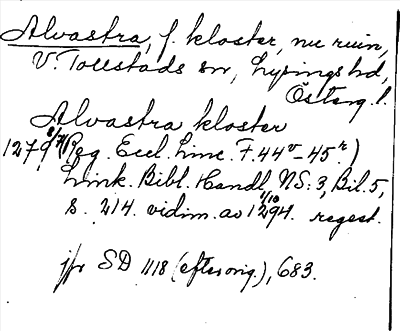 Alvastra, f. kloster, nu ruin,
V. Tollstads sn, Lysings hd,
Österg. l.
Alvastra kloster
1279 8/7 (Reg. Eccl. Linc. F. 44v-45r)
Link. Bibl. Handl. NS: 3, Bil. 5,
s. 214. vidim. av 1294 1/10. regest.
jfr SD 1118 (efter orig.), 683.